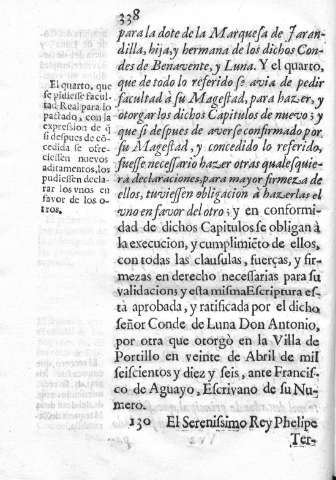 338
para la dote de la Marquesa de Jaran-
dilla, hija, y hermana de los dichos Con-
des de Benavente, y Luna. Y el quarto,
que de todo lo referido se avia de pedir
facultad à su Magestad, para hazer, y
otorgar los dichos Capitulos de nuevo; y
que si despues de averse confirmado por
su Magestad, y concedido lo referido,
fuesse necessario hazer otras qualesquie-
ra declaraciones, para mayor firmeza de
ellos, tuviessen obligacion à hazerlas el
vno en favor del otro; y en conformi-
dad de dichos Capitulos se obligan à
la execucion, y cumplimiẽto de ellos,
con todas las clausulas, fuerças, y fir-
mezas en derecho necessarias para su
validacion; y esta misma Escriptura es-
tà aprobada, y ratificada por el dicho
señor Conde de Luna Don Antonio,
por otra que otorgò en la Villa de
Portillo en veinte de Abril de mil
seiscientos y diez y seis, ante Francis-
co de Aguayo, Escrivano de su Nu-
mero.
130 El Serenissimo Rey Phelipe
Ter-
El quarto, que
se pidiesse facul-
tad Real para lo
pactado, con la
expresion de q̃
si despues de cõ-
cedida se ofre-
ciessen nuevos
aditamentos, los
pudiessen decla-
rar los vnos en
favor de los o-
tros.